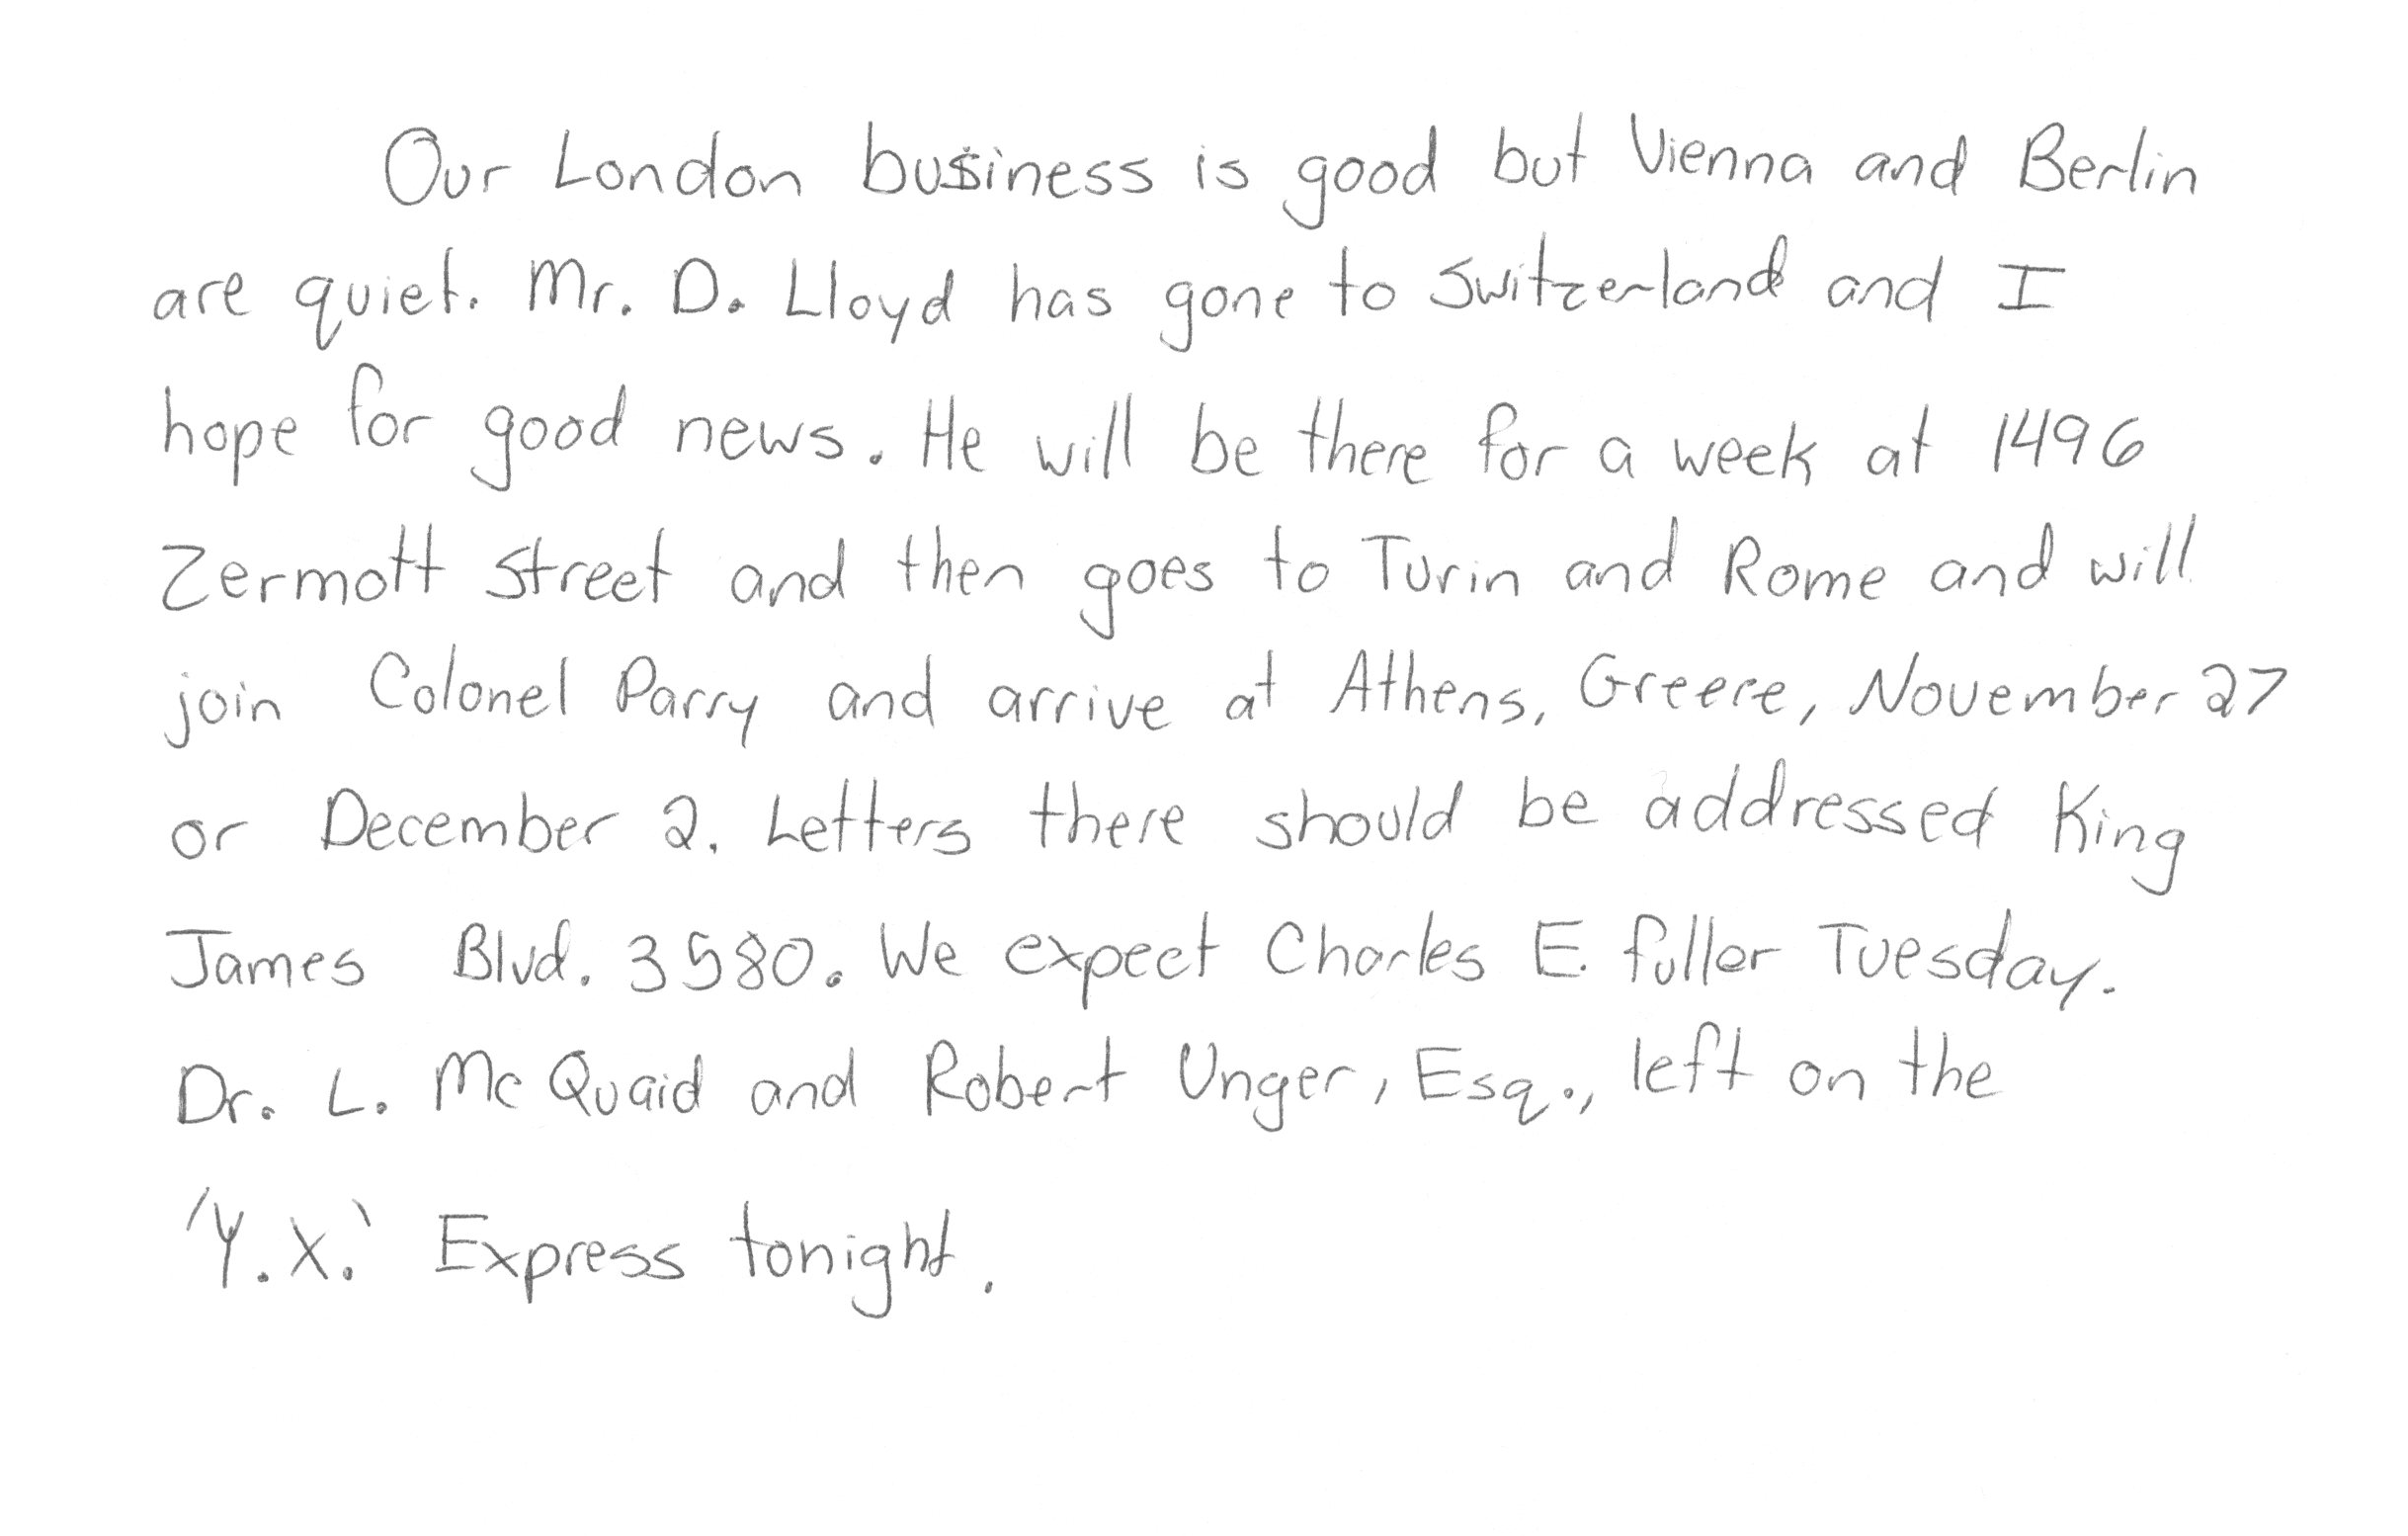 Our London business is good but Vienna and Berlin
are quiet. Mr. D. Lloyd has gone to Switzerland and I
hope for good news. He will be there for a week at 1496
Zermott Street and then goes to Turin and Rome and will
join Colonel Parry and arrive at Athens, Greece, November 27
or December 2. Letters there should be addressed King
James Blvd. 3580. We expect Charles E. fuller Tuesday.
Dr. L. McQuaid and Robert Unger, Esq., left on the
'Y.X.' Express tonight.